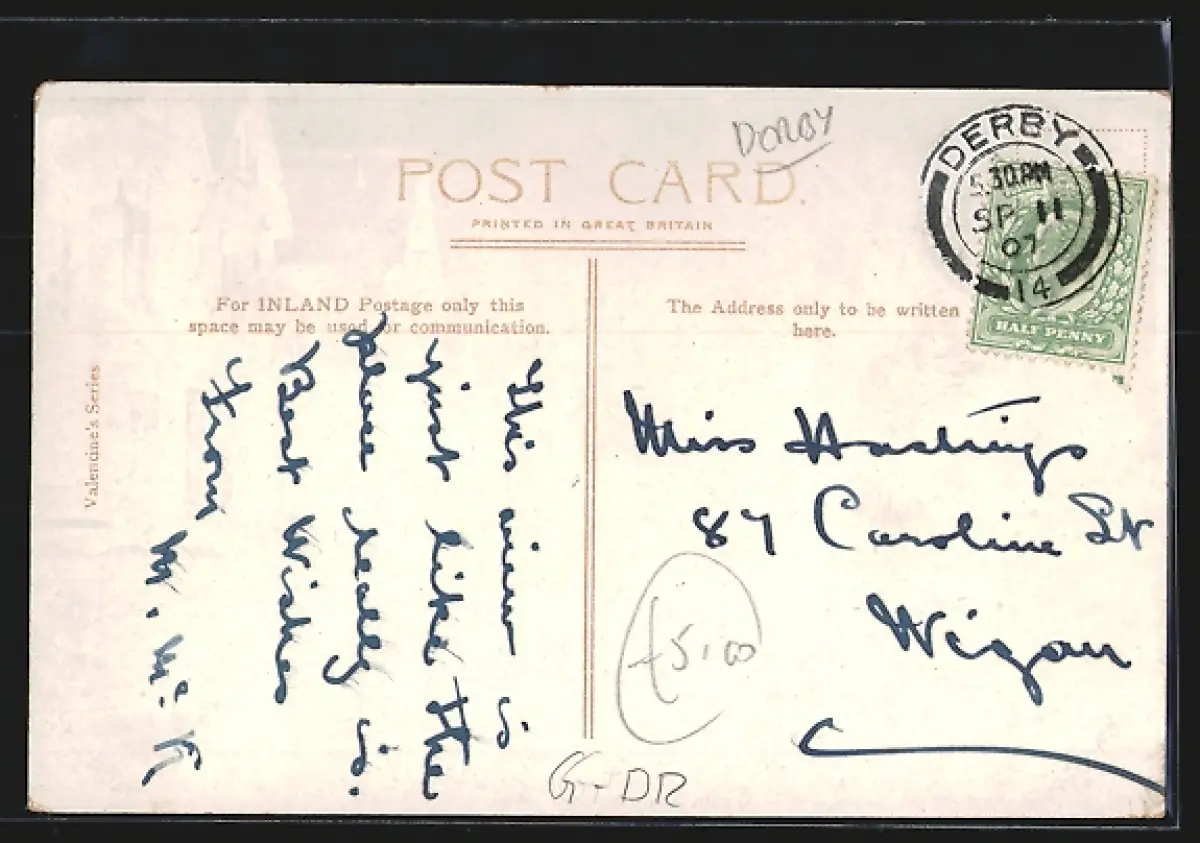 DORBY
POST CARD.
PRINTED IN GREAT BRITAIN
DERBY
5.30 PM
SP 11
07
14
HALF PENNY
For INLAND Postage only this
space may be used for communication.
The Address only to be written
here.
Valentine's Series
This view is
just like the
place really is.
Best Wishes
From
M. McK
Miss Hastings
87 Caroline St
Wigan
£5.00
G-DR